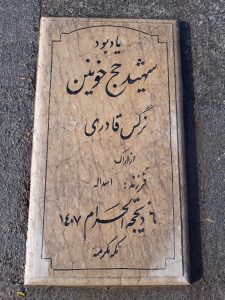 یادبود
شهید حج خونین
نرگس قادری
از اراک
فرزند: اسداله
۶ ذیحجة الحرام ۱۴۰۷
مکه مکرمه